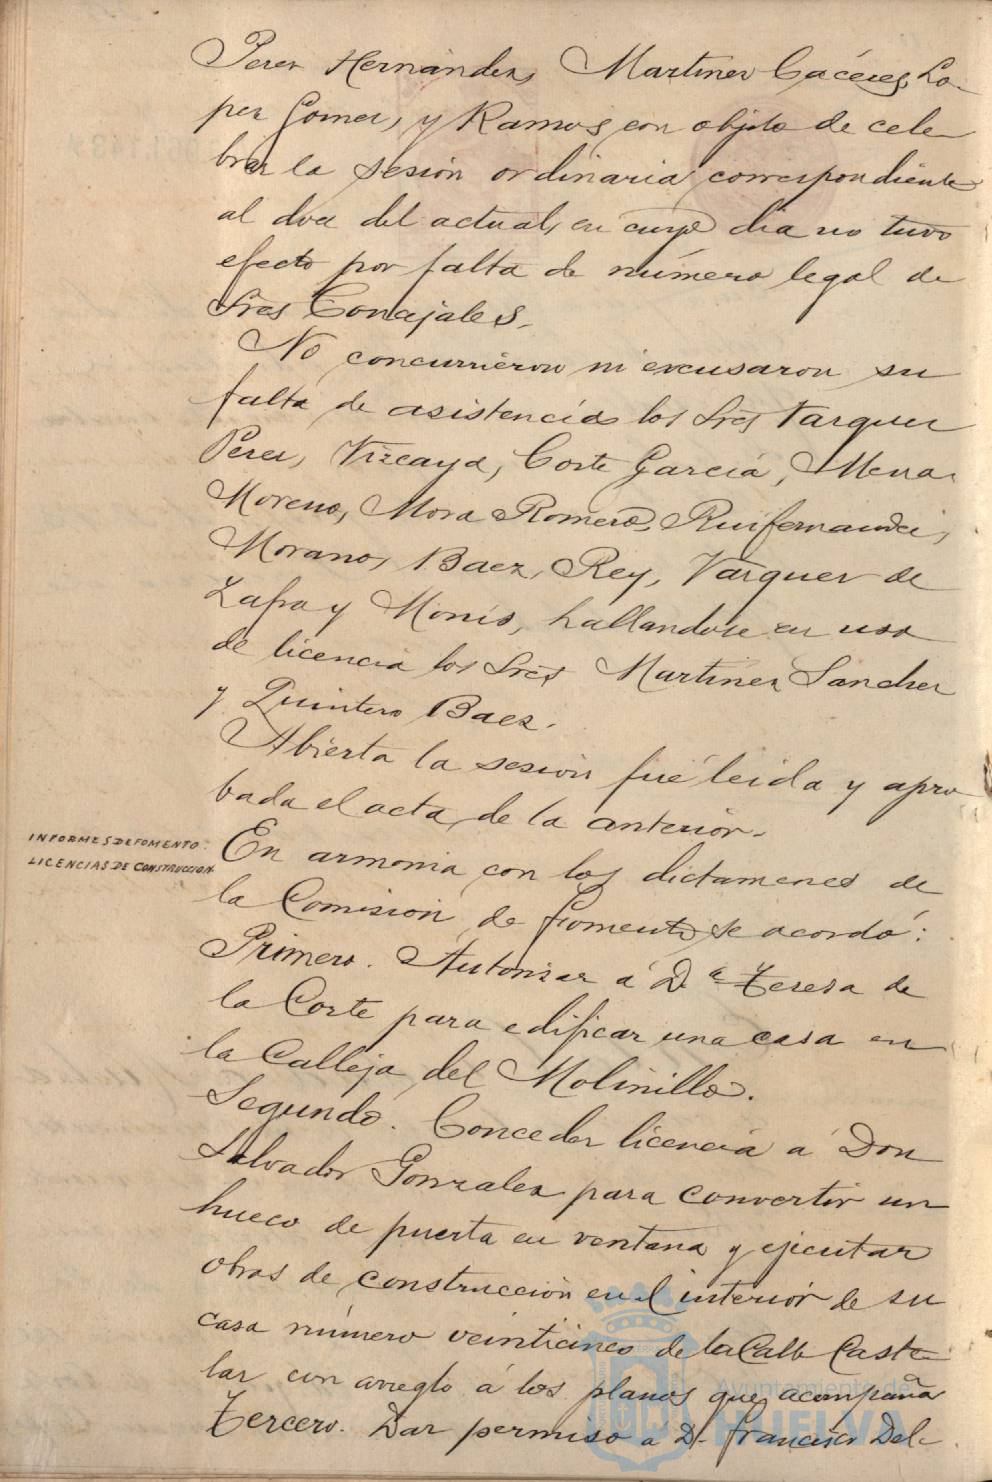 Perez Hernández, Martinez Cáceres, Lo-
pez Gomez, y Ramos con objeto de cele-
brar la sesión ordinaria correspondiente
al dia del actual, en cuyo dia no tuvo
efecto por falta de número legal de
Sres Concejales.
No concurrieron ni excusaron su
falta de asistencia los Sres Vazquez
Perez, Vizcaya, Corte Garcia, Mena
Moreno, Mora Romero, Ruifernandez,
Morano, Baez, Rey, Vázquez de
Zafra y Monis, hallandose en uso
de licencia los Sres Martinez Sanchez
y Quintero Baez.
Abierta la sesión fué leida y apro
bada el acta de la anterior.
INFORMES DE FOMENTO.
LICENCIAS DE CONSTRUCCION
En armonia con los dictamenes de
la Comision de Fomento se acordó:
Primero. Autorizar á Dª Teresa de
la Corte para edificar una casa en
la Calleja del Molinillo.
Segundo. Conceder licencia á Don
Salvador Gonzalez para convertir un
hueco de puerta en ventana y ejecutar
obras de construcción en el interior de su
casa número veinticinco de la Calle Caste
lar con arreglo á los planos que acompaña
Tercero. Dar permiso á D. Francisco Del-
Ayuntamiento de
HUELVA